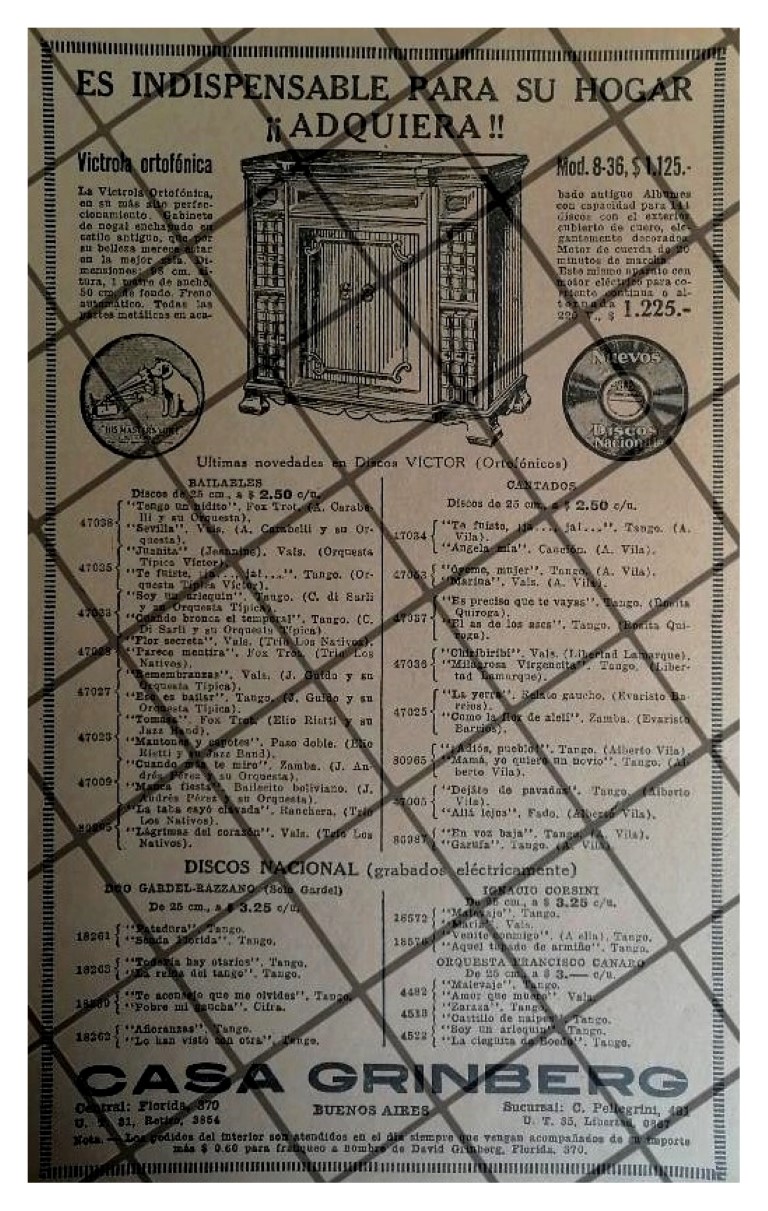 ES INDISPENSABLE PARA SU HOGAR
¡¡ADQUIERA!!
Victrola ortofónica
Mod. 8-36, $ 1.125.-
La Victrola Ortofónica,
en su más alto perfec-
cionamiento. Gabinete
de nogal enchapado en
estilo antiguo, que por
su belleza merece estar
en la mejor sala. Di-
mensiones: cm. al-
tura, 1 metro de ancho,
50 cm. de fondo. Freno
automático. Todas las
partes metálicas en aca-
bado antiguo Albumes
con capacidad para 144
discos con el exterior
cubierto de cuero, ele-
gantemente decorados
Motor de cuerda de 20
minutos de marcha.
Este mismo aparato con
motor eléctrico para co-
rriente continua o al-
ternada
220 V., $ 1.225.-
"HIS MASTER'S VOICE"
Nuevos
Discos
Nacional
Ultimas novedades en Discos VICTOR (Ortofónicos)
BAILABLES
Discos de 25 cm., a $ 2.50 c/u.
47038 "Tengo un nidito", Fox Trot. (A. Carabe-
lli y su Orquesta).
"Sevilla", Vals. (A. Carabelli y su Or-
questa).
47035 "Juanita" (Jeannine). Vals. (Orquesta
Típica Víctor).
"Te fuiste, ¡ja..., ja!...". Tango. (Or-
questa Típica Víctor).
"Soy un arlequín". Tango. (C. di Sarli
y su Orquesta Típica).
"Cuando bronca el temporal". Tango. (C.
Di Sarli y su Orquesta Típica)
"Flor secreta". Vals. (Trío Los Nativos).
"Parece mentira". Fox Trot. (Trío Los
Nativos).
47027 "Remembranzas". Vals. (J. Guido y su
Orquesta Típica).
"Eso es bailar". Tango. (J. Guido y su
Orquesta Típica).
47023 "Tomasa". Fox Trot. (Elio Rietti y su
Jazz Band).
"Mantones y capotes". Paso doble. (Elio
Rietti y su Jazz Band).
47009 "Cuando más te miro". Zamba. (J. An-
drés Pérez y su Orquesta).
"Manca fiesta". Bailecito boliviano. (J.
Andrés Pérez y su Orquesta).
"La taba cayó clavada". Ranchera. (Trío
Los Nativos).
"Lágrimas del corazón". Vals. (Trío Los
Nativos).
CANTADOS
Discos de 25 cm., a $ 2.50 c/u.
47034 "Te fuiste, ¡ja..., ja!...". Tango. (A.
Vila).
"Angela mía". Canción. (A. Vila).
"Oyeme, mujer". Tango. (A. Vila).
"Marina". Vals. (A. Vila).
47037 "Es preciso que te vayas". Tango. (Rosita
Quiroga).
"El as de los ases". Tango. (Rosita Qui-
roga).
47036 "Chiribiribí". Vals. (Libertad Lamarque).
"Milagrosa Virgencita". Tango. (Liber-
tad Lamarque).
47025 "La yerra". Relato gaucho. (Evaristo Ba-
rrios).
"Como la flor de alelí". Zamba. (Evaristo
Barrios).
80965 "¡Adiós, pueblo!". Tango. (Alberto Vila).
"Mamá, yo quiero un novio". Tango. (Al-
berto Vila).
47005 "Dejáte de pavadas". Tango. (Alberto
Vila).
"Allá lejos". Fado. (Alberto Vila).
80987 "En voz baja". Tango. (A. Vila).
"Garufa". Tango. (A. Vila).
DISCOS NACIONAL (grabados eléctricamente)
DUO GARDEL-RAZZANO (Solo Gardel)
De 25 cm., a $ 3.25 c/u.
18261 "Patadura". Tango.
"Senda florida". Tango.
18263 "Todavía hay otarios". Tango.
"La reina del tango". Tango.
"Te aconsejo que me olvides". Tango.
"Pobre mi gaucha". Cifra.
18262 "Añoranzas". Tango.
"Lo han visto con otra". Tango.
IGNACIO CORSINI
De 25 cm., a $ 3.25 c/u.
18572 "Malevaje". Tango.
"María". Vals.
"Venite conmigo". (A ella). Tango.
"Aquel tapado de armiño". Tango.
ORQUESTA FRANCISCO CANARO
De 25 cm., a $ 3.— c/u.
4482 "Malevaje". Tango.
"Amor que muere". Vals.
4513 "Zaraza". Tango.
"Castillo de naipes". Tango.
4522 "Soy un arlequín". Tango.
"La cieguita de Boedo". Tango.
CASA GRINBERG
Central: Florida, 370
U. T. 31, Retiro, 3854
BUENOS AIRES
Sucursal: C. Pellegrini, 431
U. T. 35, Libertad,
Nota. — Los pedidos del interior son atendidos en el día siempre que vengan acompañados de su importe
más $ 0.60 para franqueo a nombre de David Grinberg, Florida, 370.